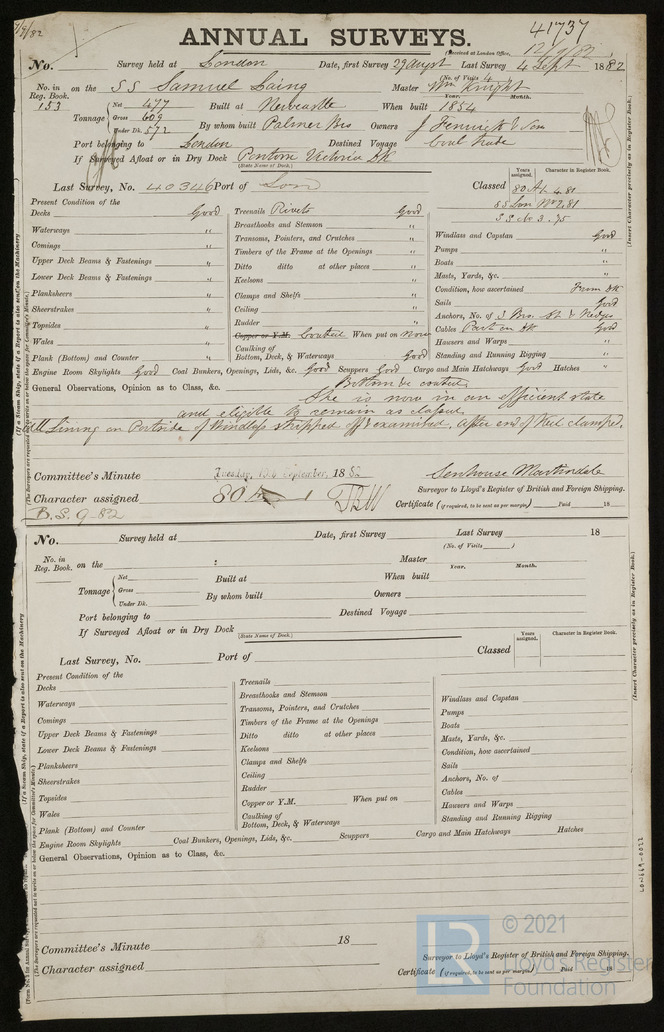 41737
ANNUAL SURVEYS.
(Received at London Office, 12/9/82
No. Survey held at London Date, first Survey 29 Augst Last Survey 4 Sept 1882
(No. of Visits 4)
No. in Reg. Book. 153 on the SS Samuel Laing Master Wm Knight
Year. Month.
Tonnage Net 477 Built at Newcastle When built 1854
Gross 609
Under Dk. 572 By whom built Palmer Bros Owners J Fenwick & Son
Port belonging to London Destined Voyage Coal trade
If Surveyed Afloat or in Dry Dock Pontoon Victoria Dk
(State Name of Dock.)
Last Survey, No. 40346 Port of Lon Classed 80 A1 4.81
Years assigned. Character in Register Book.
SS Lon No 2.81
SS No 3.75
Present Condition of the
Decks Good
Waterways "
Comings "
Upper Deck Beams & Fastenings "
Lower Deck Beams & Fastenings "
Planksheers "
Sheerstrakes "
Topsides "
Wales "
Plank (Bottom) and Counter "
Treenails Rivets Good
Breasthooks and Stemson "
Transoms, Pointers, and Crutches "
Timbers of the Frame at the Openings "
Ditto ditto at other places "
Keelsons "
Clamps and Shelfs "
Ceiling "
Rudder "
Copper or Y.M. Coated When put on now
Caulking of Bottom, Deck, & Waterways Good
Windlass and Capstan Good
Pumps "
Boats "
Masts, Yards, &c. "
Condition, how ascertained From Dk
Sails Good
Anchors, No. of 3 Brs. St. & Kedges
Cables Part on Dk Good
Hawsers and Warps "
Standing and Running Rigging "
Engine Room Skylights Good Coal Bunkers, Openings, Lids, &c. Good Scuppers Good Cargo and Main Hatchways Good Hatches "
General Observations, Opinion as to Class, &c. Bottom coated
She is now in an efficient state
and eligible to remain as classed.
Lining on Portside of Windlass stripped off & examined, after end of Keel clamped.
Committee's Minute Tuesday, September, 1882
Senhouse Martindale
Surveyor to Lloyd's Register of British and Foreign Shipping.
Character assigned 80 A 1
Certificate (if required, to be sent as per margin) Paid 18
B.S. 9-82
(If a Steam Ship, state if a Report is also sent on the Machinery
(Insert Character precisely as in Register Book.)
No. Survey held at Date, first Survey Last Survey 18
(No. of Visits )
No. in Reg. Book. on the Master
Year. Month.
Tonnage Net Built at When built
Gross
Under Dk. By whom built Owners
Port belonging to Destined Voyage
If Surveyed Afloat or in Dry Dock
(State Name of Dock.)
Years assigned. Character in Register Book.
Last Survey, No. Port of Classed
Present Condition of the
Decks
Waterways
Comings
Upper Deck Beams & Fastenings
Lower Deck Beams & Fastenings
Planksheers
Sheerstrakes
Topsides
Wales
Plank (Bottom) and Counter
Treenails
Breasthooks and Stemson
Transoms, Pointers, and Crutches
Timbers of the Frame at the Openings
Ditto ditto at other places
Keelsons
Clamps and Shelfs
Ceiling
Rudder
Copper or Y.M. When put on
Caulking of Bottom, Deck, & Waterways
Windlass and Capstan
Pumps
Boats
Masts, Yards, &c.
Condition, how ascertained
Sails
Anchors, No. of
Cables
Hawsers and Warps
Standing and Running Rigging
Engine Room Skylights Coal Bunkers, Openings, Lids, &c. Scuppers Cargo and Main Hatchways Hatches
General Observations, Opinion as to Class, &c.
(If a Steam Ship, state if a Report is also sent on the Machinery
(Insert Character precisely as in Register Book.)
LON669-0022
Committee's Minute 18
Surveyor to Lloyd's Register of British and Foreign Shipping.
Character assigned
Certificate (if required, to be sent as per margin) Paid 18
LR © 2021
Lloyd's Register
Foundation